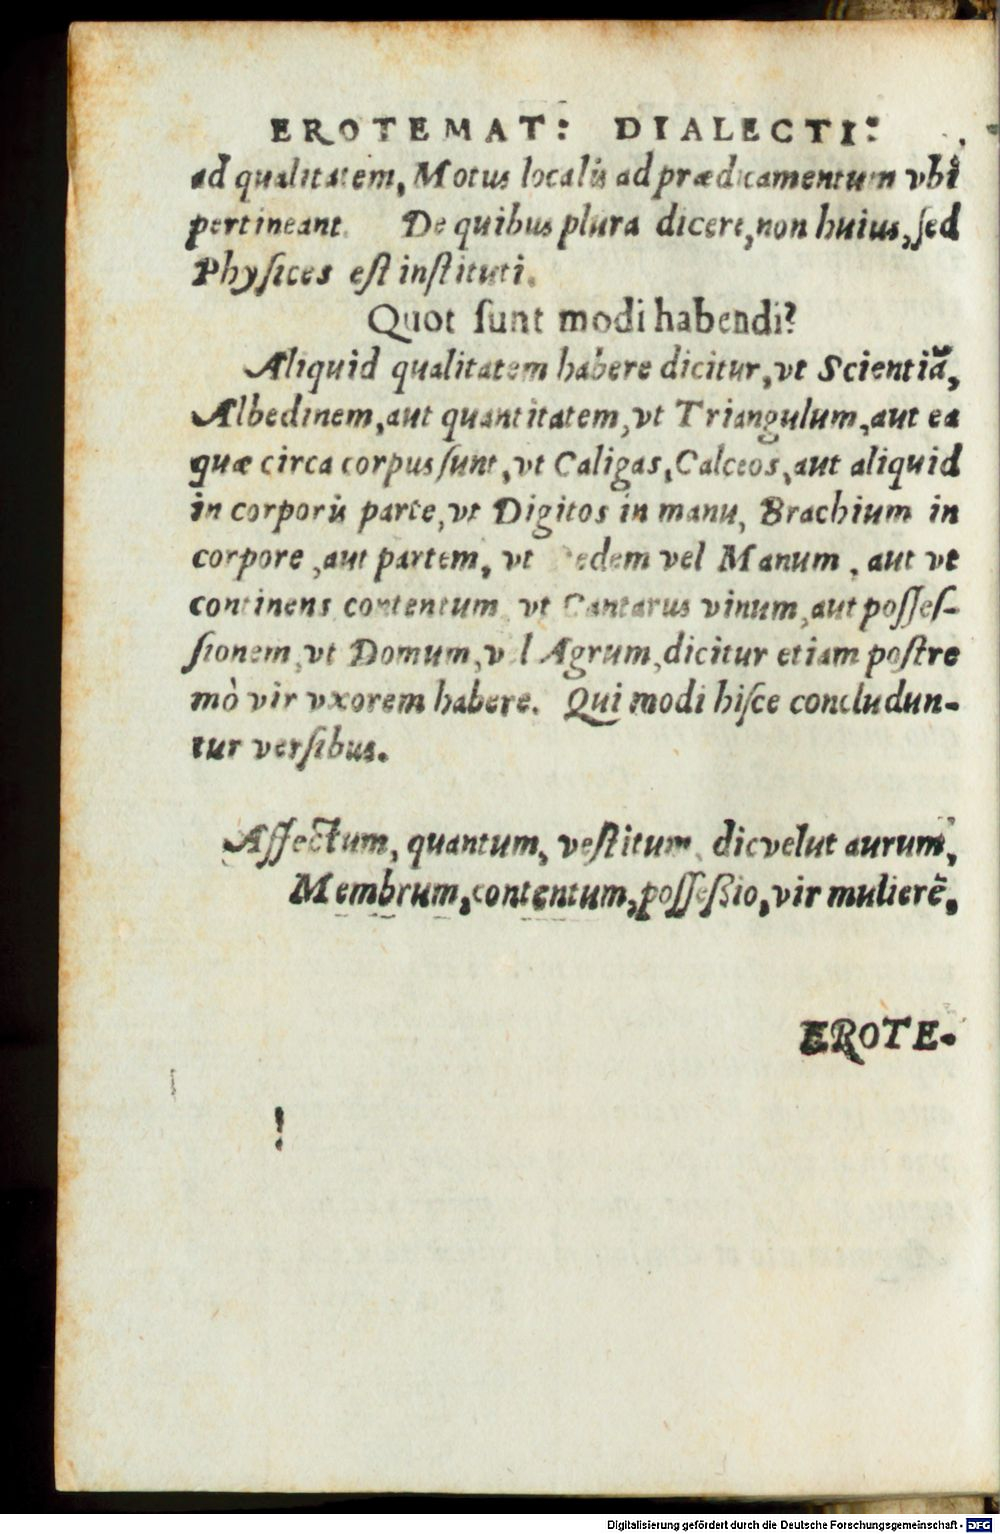 EROTEMAT: DIALECTI:
ad qualitatem, Motus localis ad prædicamentum vbi
pertineant. De quibus plura dicere, non huius, ſed
Phyſices eſt inſtituti.
Quot ſunt modi habendi?
Aliquid qualitatem habere dicitur, vt Scientiã,
Albedinem, aut quantitatem, vt Triangulum, aut ea
quæ circa corpus ſunt, vt Caligas, Calceos, aut aliquid
in corporis parte, vt Digitos in manu, Brachium in
corpore, aut partem, vt Pedem vel Manum, aut vt
continens contentum, vt Cantarus vinum, aut poſſeſ-
ſionem, vt Domum, vel Agrum, dicitur etiam poſtre
mò vir vxorem habere. Qui modi hiſce concludun-
tur verſibus.
Affectum, quantum, veſtitum, dic velut aurum,
Membrum, contentum, poſſeßio, vir mulierẽ,
EROTE-
Digitalisierung gefördert durch die Deutsche Forschungsgemeinschaft - DFG